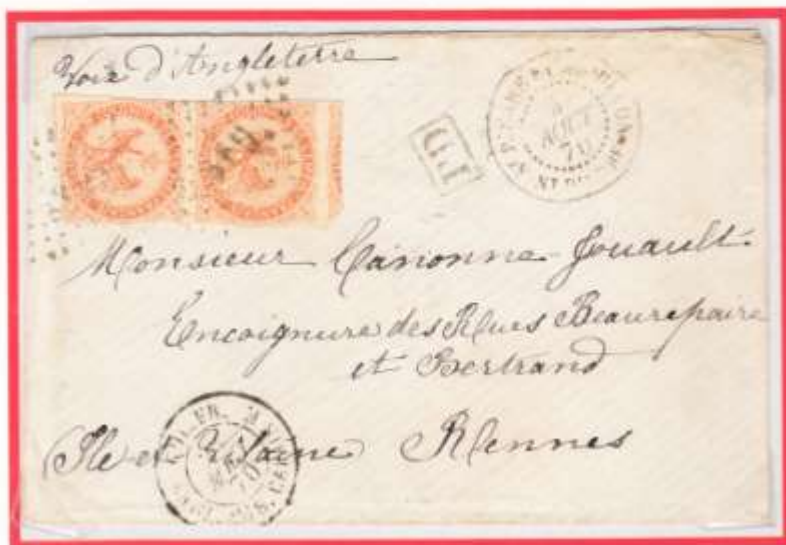 Voie d'Angleterre
P.D
AOUT
70
Monsieur Canonne-Jouault
Encoignure des Rues Beaurepaire
et Bertrand
Ile et Vilaine Rennes